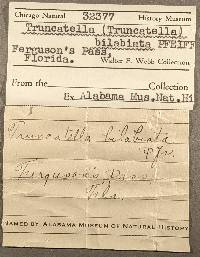 Chicago Natural 32377 History Museum
Truncatella (Truncatella)
bilabiata PFEIFF
Ferguson's Pass,
Florida. Walter F. Webb Collection
From the Collection
Ex Alabama Mus.Nat.Hi
Truncatella bilabiata
Pfr.
Ferguson's Pass
Fla.
NAMED BY ALABAMA MUSEUM OF NATURAL HISTORY